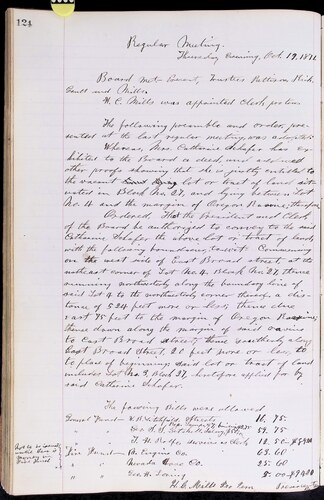 124
Regular Meeting.
Thursday Evening, Oct. 19, 1871
Board Met. Present, Trustees Pattison, Rich,
Gault and Mills.
H. C. Mills was appointed Clerk protem.
The following preamble and order, pre-
sented at the last regular meeting, was adopted:
Whereas, Mrs. Catherine Schafer has ex-
hibited to the Board a deed, and
other proofs showing that she is justly entitled to
the vacant lot or tract of land, situ-
ated in Block No. 27, and lying between Lot
No. 4 and the margin of Oregon Ravine, therefore
Ordered, That the President and Clerk
of the Board be authorized to convey to the said
Catherine Schafer, the above lot or tract of land,
with the following boundaries, to wit: Commencing
on the west side of East Broad street, at the
northeast corner of Lot No. 4, Block No. 27, thence
running northwesterly along the boundary line of
said Lot 4 to the northwesterly corner thereof, a dis-
tance of 52 4 feet more or less; thence
east 75 feet to the margin of Oregon Ravine;
thence down along the margin of said ravine
to East Broad street; thence southerly along
East Broad Street, 26 feet more or less, to
to place of beginning; said lot or tract of land
includes Lot No. 3, Block 27, heretofore applied for by
said Catherine Schafer.
The following Bills were allowed
General Fund — Streets 16.75.
59.75
services as Clerk 12.50
Fire Fund — Engine Co. 63.60
Nevada Hose Co. 25.60
Loring 5.00
H. C. Mills Pro Tem